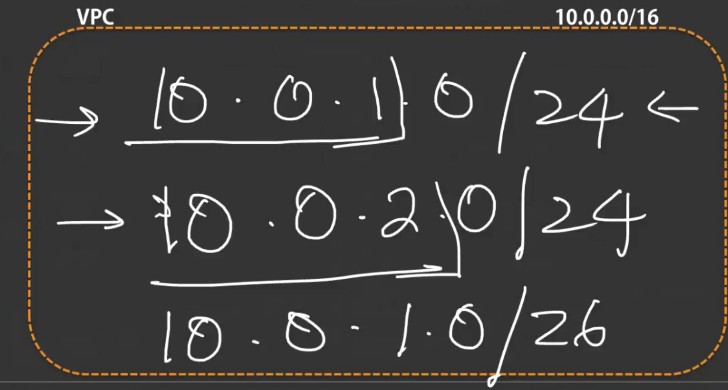 VPC 10.0.0.0/16
→ 10.0.1.0/24 ←
→ 10.0.2.0/24
10.0.1.0/26